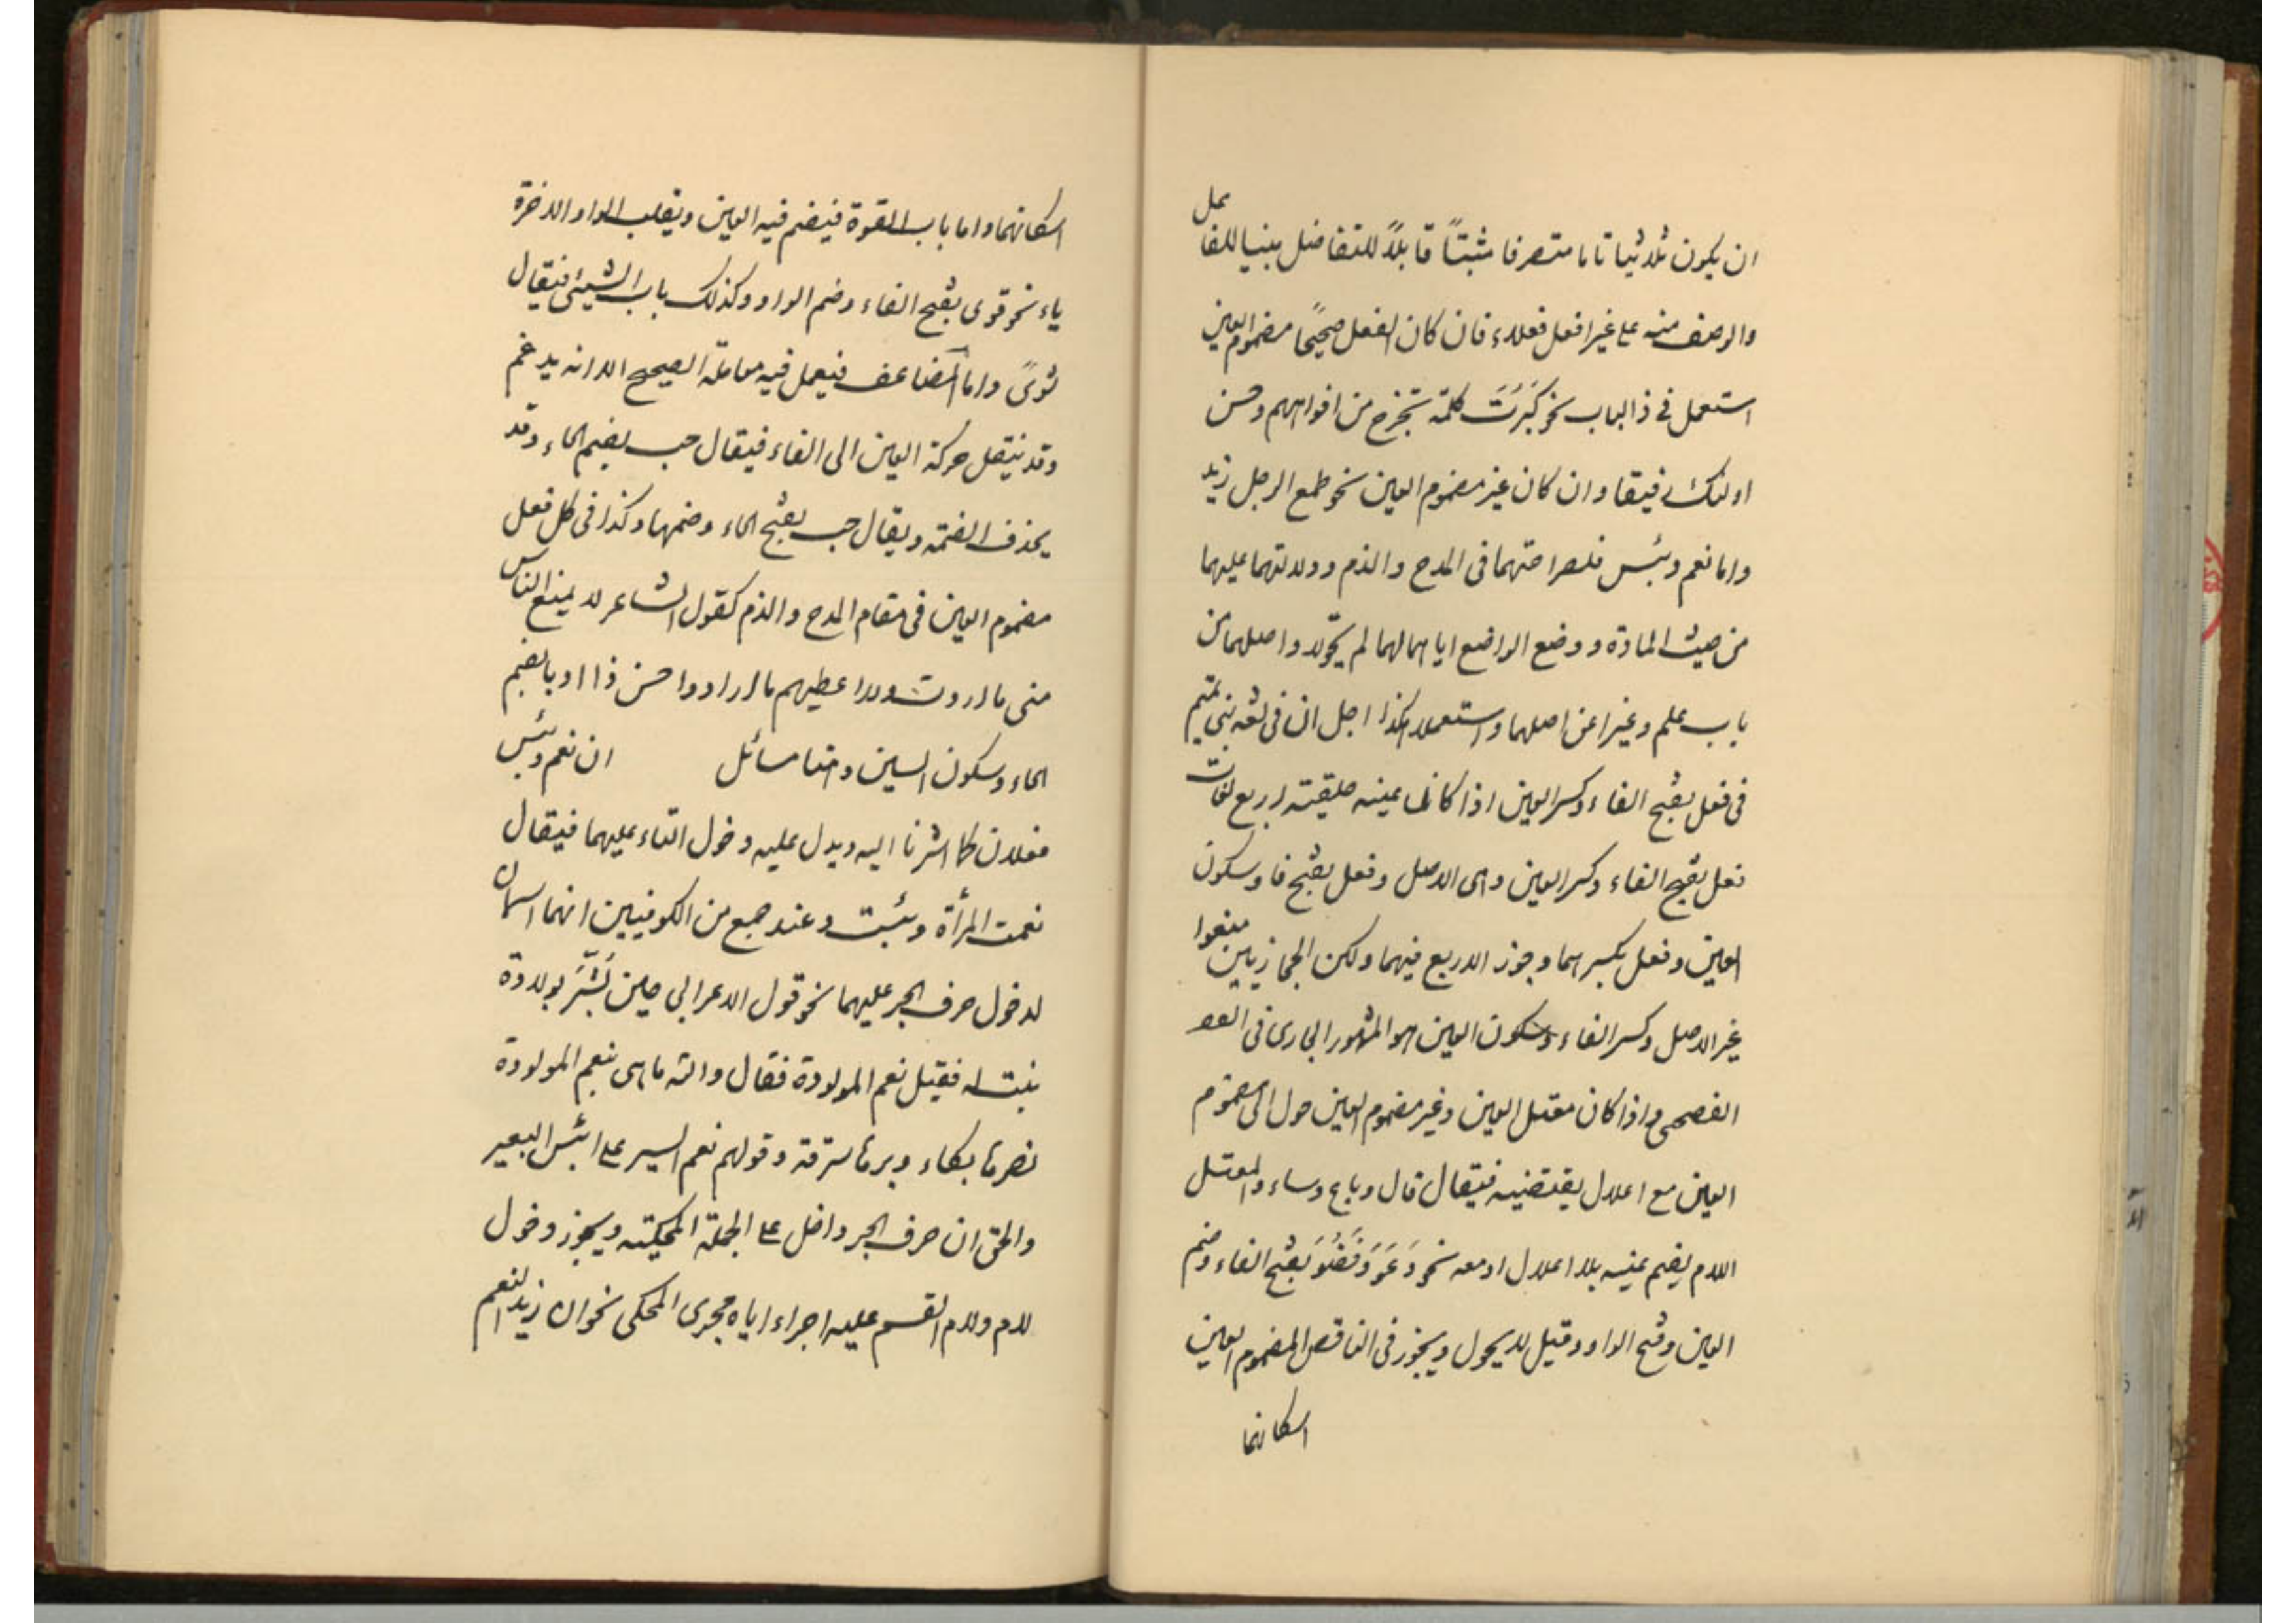 ان يكون ثلاثيا تاما متصرفا مثبتاً قابلاً للتفاضل مبنيا للفاعل
والوصف منه على غير افعل فعلاء فان كان الفعل صحيحًا مضموم العين
استعمل في ذا الباب نحو كَبُرَتَ كلمة تخرج من افواههم وحسن
اولئك رفيقا وان كان غير مضموم العين نحو طمع الرجل زيد
واما نعم وبئس فلصراحتهما فى المدح والذم ودلالتهما عليهما
من حيث المادة ووضع الواضع اياهما لهما لم يحوّلا واصلهما من
باب علم وغيرا عن اصلهما واستعملا هكذا اجل ان فى لغة بني تميم
فى فعل بفتح الفاء وكسر العين اذا كانا عينه حلقية اربع لغات
فعل بفتح الفاء وكسر العين وهى الاصل وفعل بفتح فا وسكون
العين وفعل بكسرهما وجوز الاربع فيهما ولكن الحجازيين منعوا
غير الاصل وكسر الفاء وسكون العين هو المشهور الجارى فى
الفصحى واذا كان معتل العين وغير مضموم العين حول الى مضموم
العين مع اعلال يقتضيه فيقال قال وباع وساء والمعتل
اللام يضم عينه بلا اعلال او معه نحو دَعَوَ وَقَضُوَ بفتح الفاء وضم
العين وفتح الواو وقيل لا يحول ويجوز فى الناقص المضموم العين
اسكانها
اسكانهما واما باب القوة فيضم فيه العين ويقلب الواو الاخرة
ياء نحو قوى بفتح الفاء وضم الواو وكذلك باب الشيئ فيقال
ثوىً واما المضاعف فيعمل فيه معاملة الصحيح الا انه يدغم
وقد ينتقل حركة العين الى الفاء فيقال حب بضم الحاء وقد
يحذف الضمة ويقال حب بفتح الحاء وضمها وكذا فى كل فعل
مضموم العين فى مقام المدح والذم كقول الشاعر لا يمنع الناس
منى ما اردت ولا اعطيهم ما ارادوا حسن ذا ادبا بضم
الحاء وسكون السين وهنا مسائل ان نعم وبئس
فعلان كما اشرنا اليه ويدل عليه دخول التاء عليهما فيقال
نعمت المرأة وبئست وعند جمع من الكوفيين انهما اسمان
لدخول حرف الجر عليهما نحو قول الاعرابي حين بُشِّرَ بولادة
بنت له فقيل نعم المولودة فقال والله ما هى بنعم المولودة
نصرها بكاء وبرها سرقة وقولهم نعم السير على بئس البعير
والحق ان حرف الجر داخل على الجملة المحكية ويجوز دخول
لام ولام القسم عليه اجراء اياه مجرى المحكى نحو ان زيد لنعم